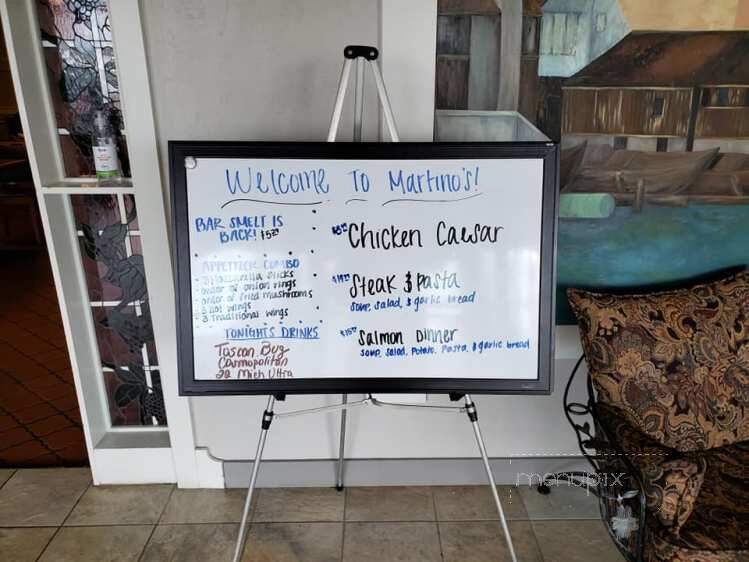 Welcome To Martino's!
BAR SMELT IS
BACK!
APPETIZER COMBO
Mozzarella sticks
order of onion rings
order of fried mushrooms
Hot wings
3 Traditional wings
TONIGHTS DRINKS
Tuscan Bug
Cosmopolitan
22 Mich Ultra
Chicken Caesar
Steak & Pasta
soup, salad, & garlic bread
Salmon Dinner
soup, salad, Potato, Pasta, & garlic bread
menupix